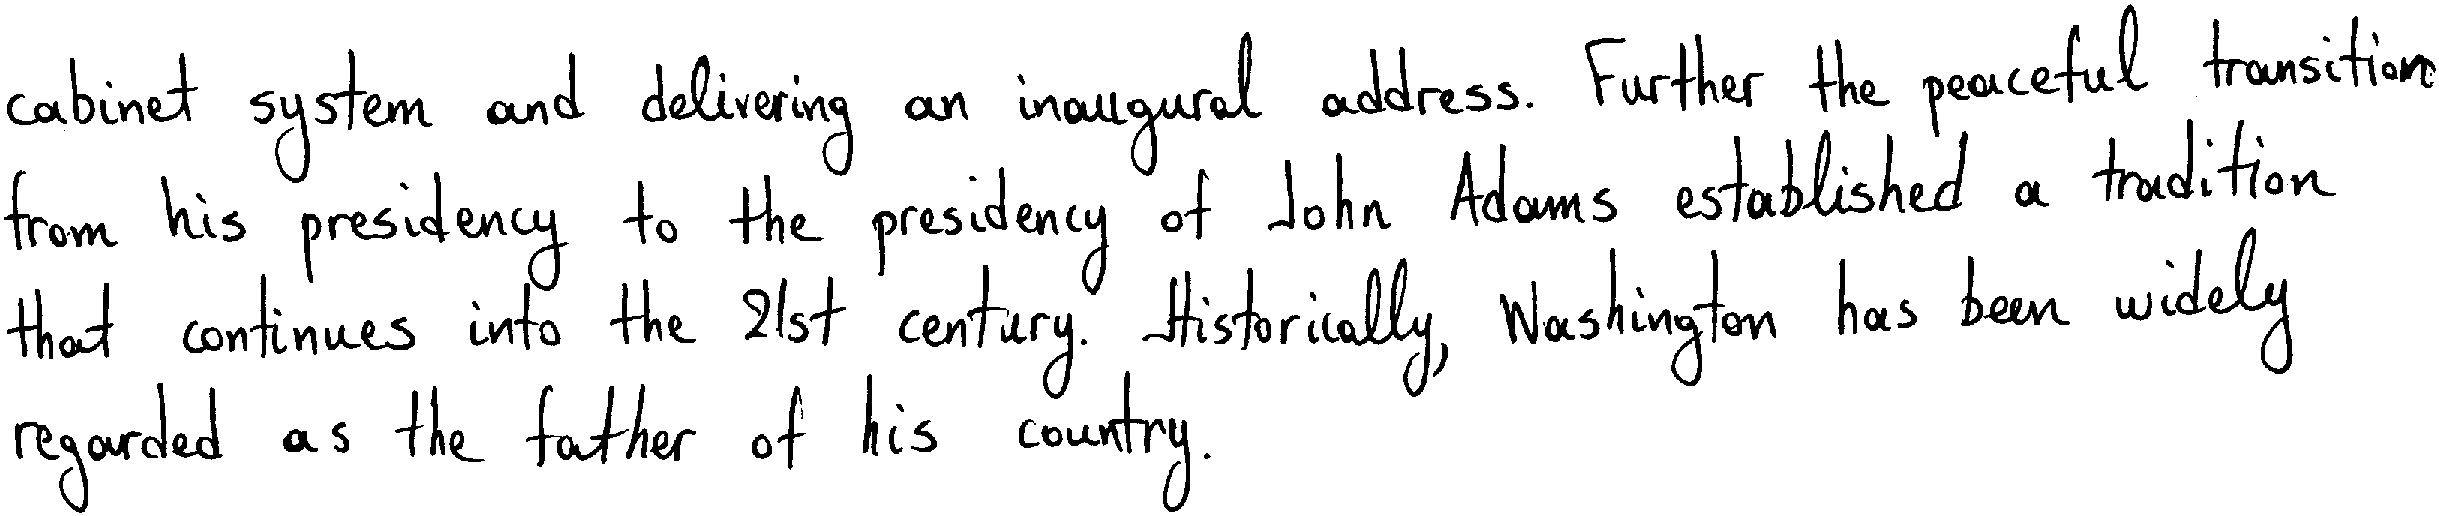 cabinet system and delivering an inaugural address. Further the peaceful transition
from his presidency to the presidency of John Adams established a tradition
that continues into the 21st century. Historically, Washington has been widely
regarded as the father of his country.